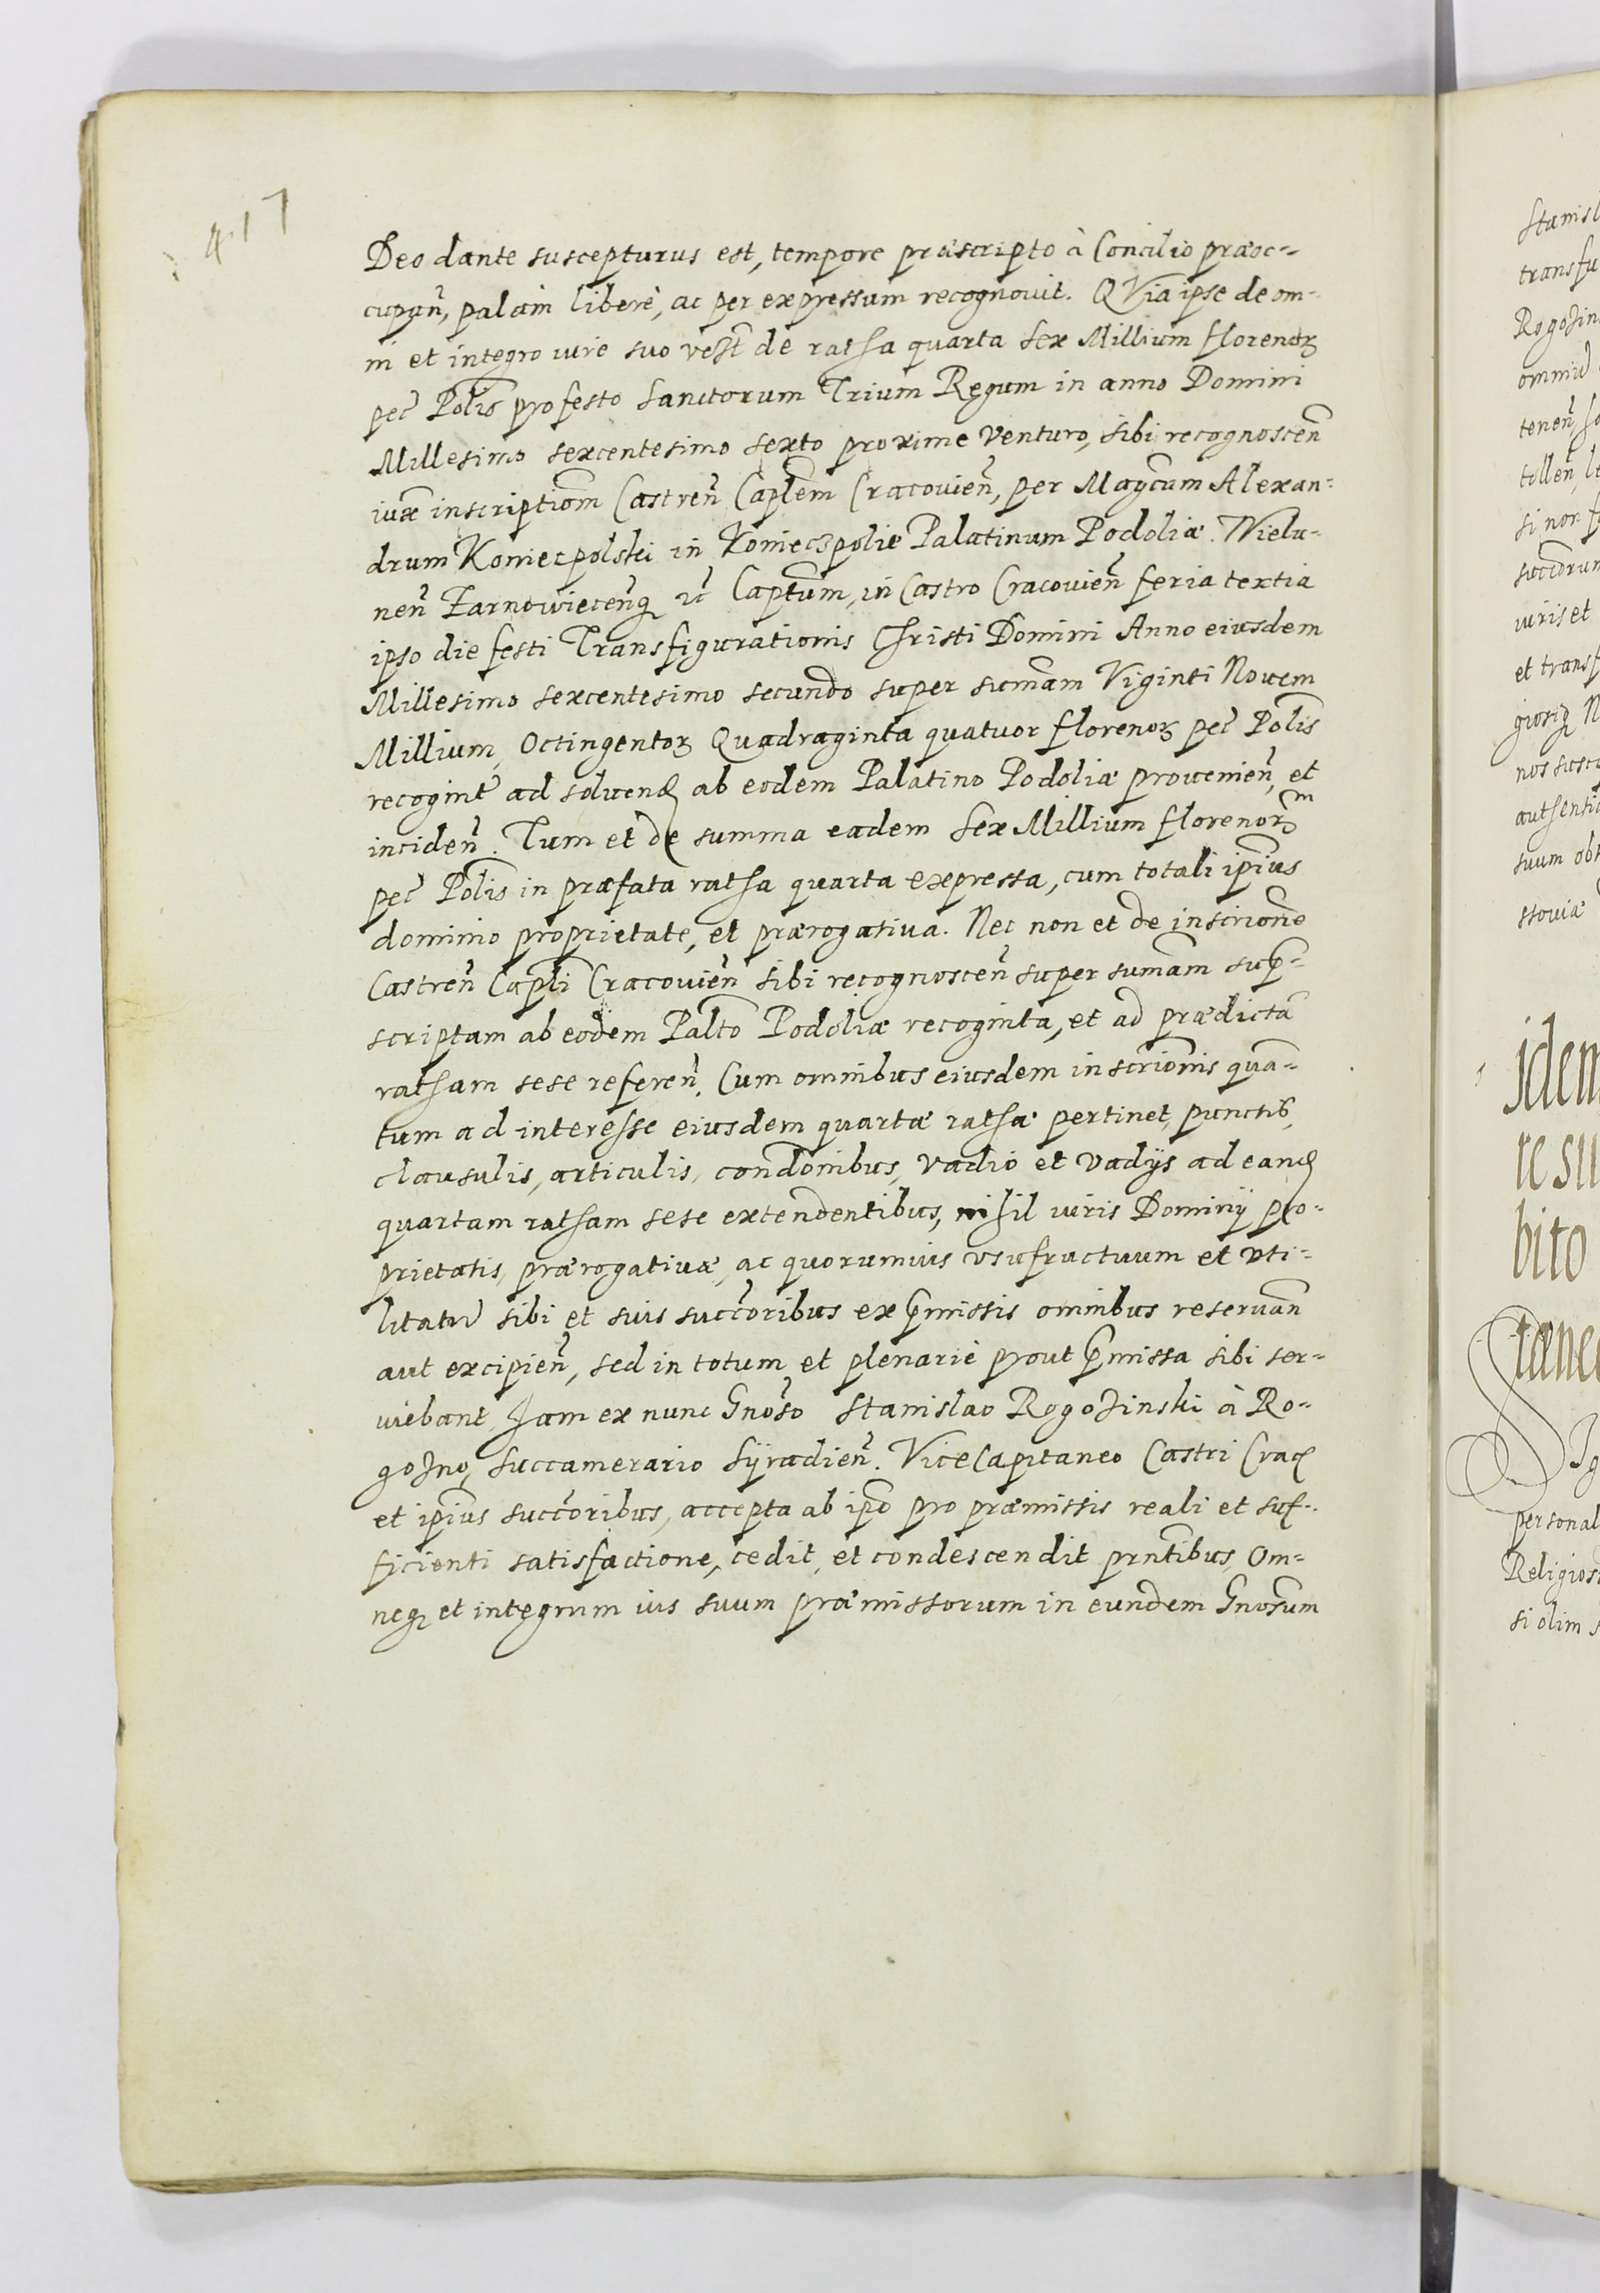 417
Deo dante suscepturus est, tempore præscripto à Concilio præoc-
cupan̄, palàm liberè, ac per expressum recognovit. QVia ipse de om-
ni et integro iure suo vest̄ de ratha quarta sex Millium florenoꝝ
pec̄ Polīs pro festo Sanctorum Trium Regum in anno Domini
Millesimo sexcentesimo sexto proxime venturo, sibi recognoscen̄
iuxᵃ inscriptiōm Castren̄ Caplēm Cracovien̄, per Magcūm Alexan-
drum Koniecpolski in Konieczpolie Palatinum Podoliæ. Wielu-
nen̄ Zarnowiecen̄qꝫ ec̄ Captūm, in Castro Cracovien̄ feria tertia
ipso die festi Transfigurationis Christi Domini Anno eiusdem
Millesimo sexcentesimo secundo super sum̄am Viginti Novem
Millium, Octingentoꝝ Quadraginta quatuor florenoꝝ pec̄ Polīs
recognit̄ ad solvend̄ ab eodem Palatino Podoliæ provenien̄, et
inciden̄. Tum et de summa eadem Sex Millium florenorᵐ
pec̄ Polīs in præfata ratha quarta expressa, cum totali ip̄ius
dominio proprietate, et prærogativa. Nec non et de inscriōne
Castren̄ Caplī Cracovien̄ sibi recognoscen̄ super sum̄am sup̄-
scriptam ab eodem Paltō Podoliæ recognita, et ad prædictā
ratham sese referen̄. Cum omnibus eiusdem inscriōnis quan̄-
tum ad interesse eiusdem quartæ rathæ pertinet, punctis,
clausulis, articulis, condōnibus, vadio et vadijs ad eand̄
quartam ratham sese extendentibus, nihil iuris Dominij pro-
prietatis, prærogativæ, ac quorumvis vsufructuum et vti-
litatū sibi et suis succ̄oribus ex p̄missis omnibus reservan̄
aut excipien̄, sed in totum et plenariè prout p̄missa sibi ser-
viebant Jam ex nunc Gnōso Stanislao Rogozinski à Ro-
gozno, succamerario Syradien̄. ViceCapitaneo Castri Crac̄
et ip̄ius succ̄oribus, accepta ab ip̄o pro præmissis reali et suf-
ficienti satisfactione, cedit, et condescendit prn̄tibus, Om-
neqꝫ et integrum ius suum præmissorum in eundem Gnōsum
Stanisl
transfu
Rogozin
tenen̄
tollen̄, le
si non f
iuris et
et transf
nos susc
authenti
suum obt
stoviæ
idem
re su
bito
Stane
personal
Religios
si olim s